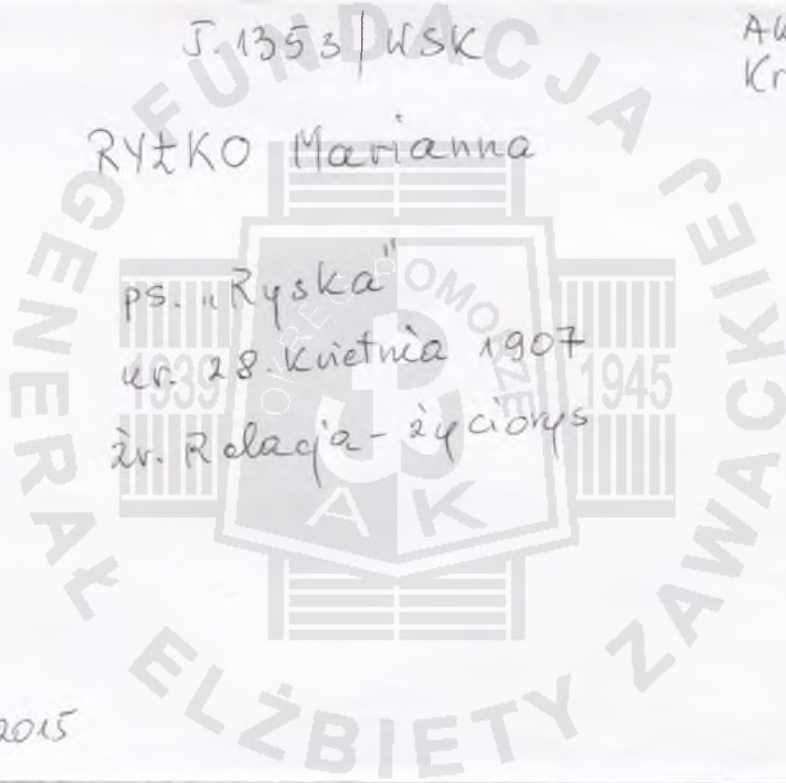 J. 1353 | WSK
AK
Kr
RYŁKO Marianna
ps. „Ryska"
ur. 28. Kwietnia 1907
źr. Relacja - życiorys
2015
FUNDACJA GENERAŁ ELŻBIETY ZAWACKIEJ
OKRĘG POMORZE
1939
1945
AK